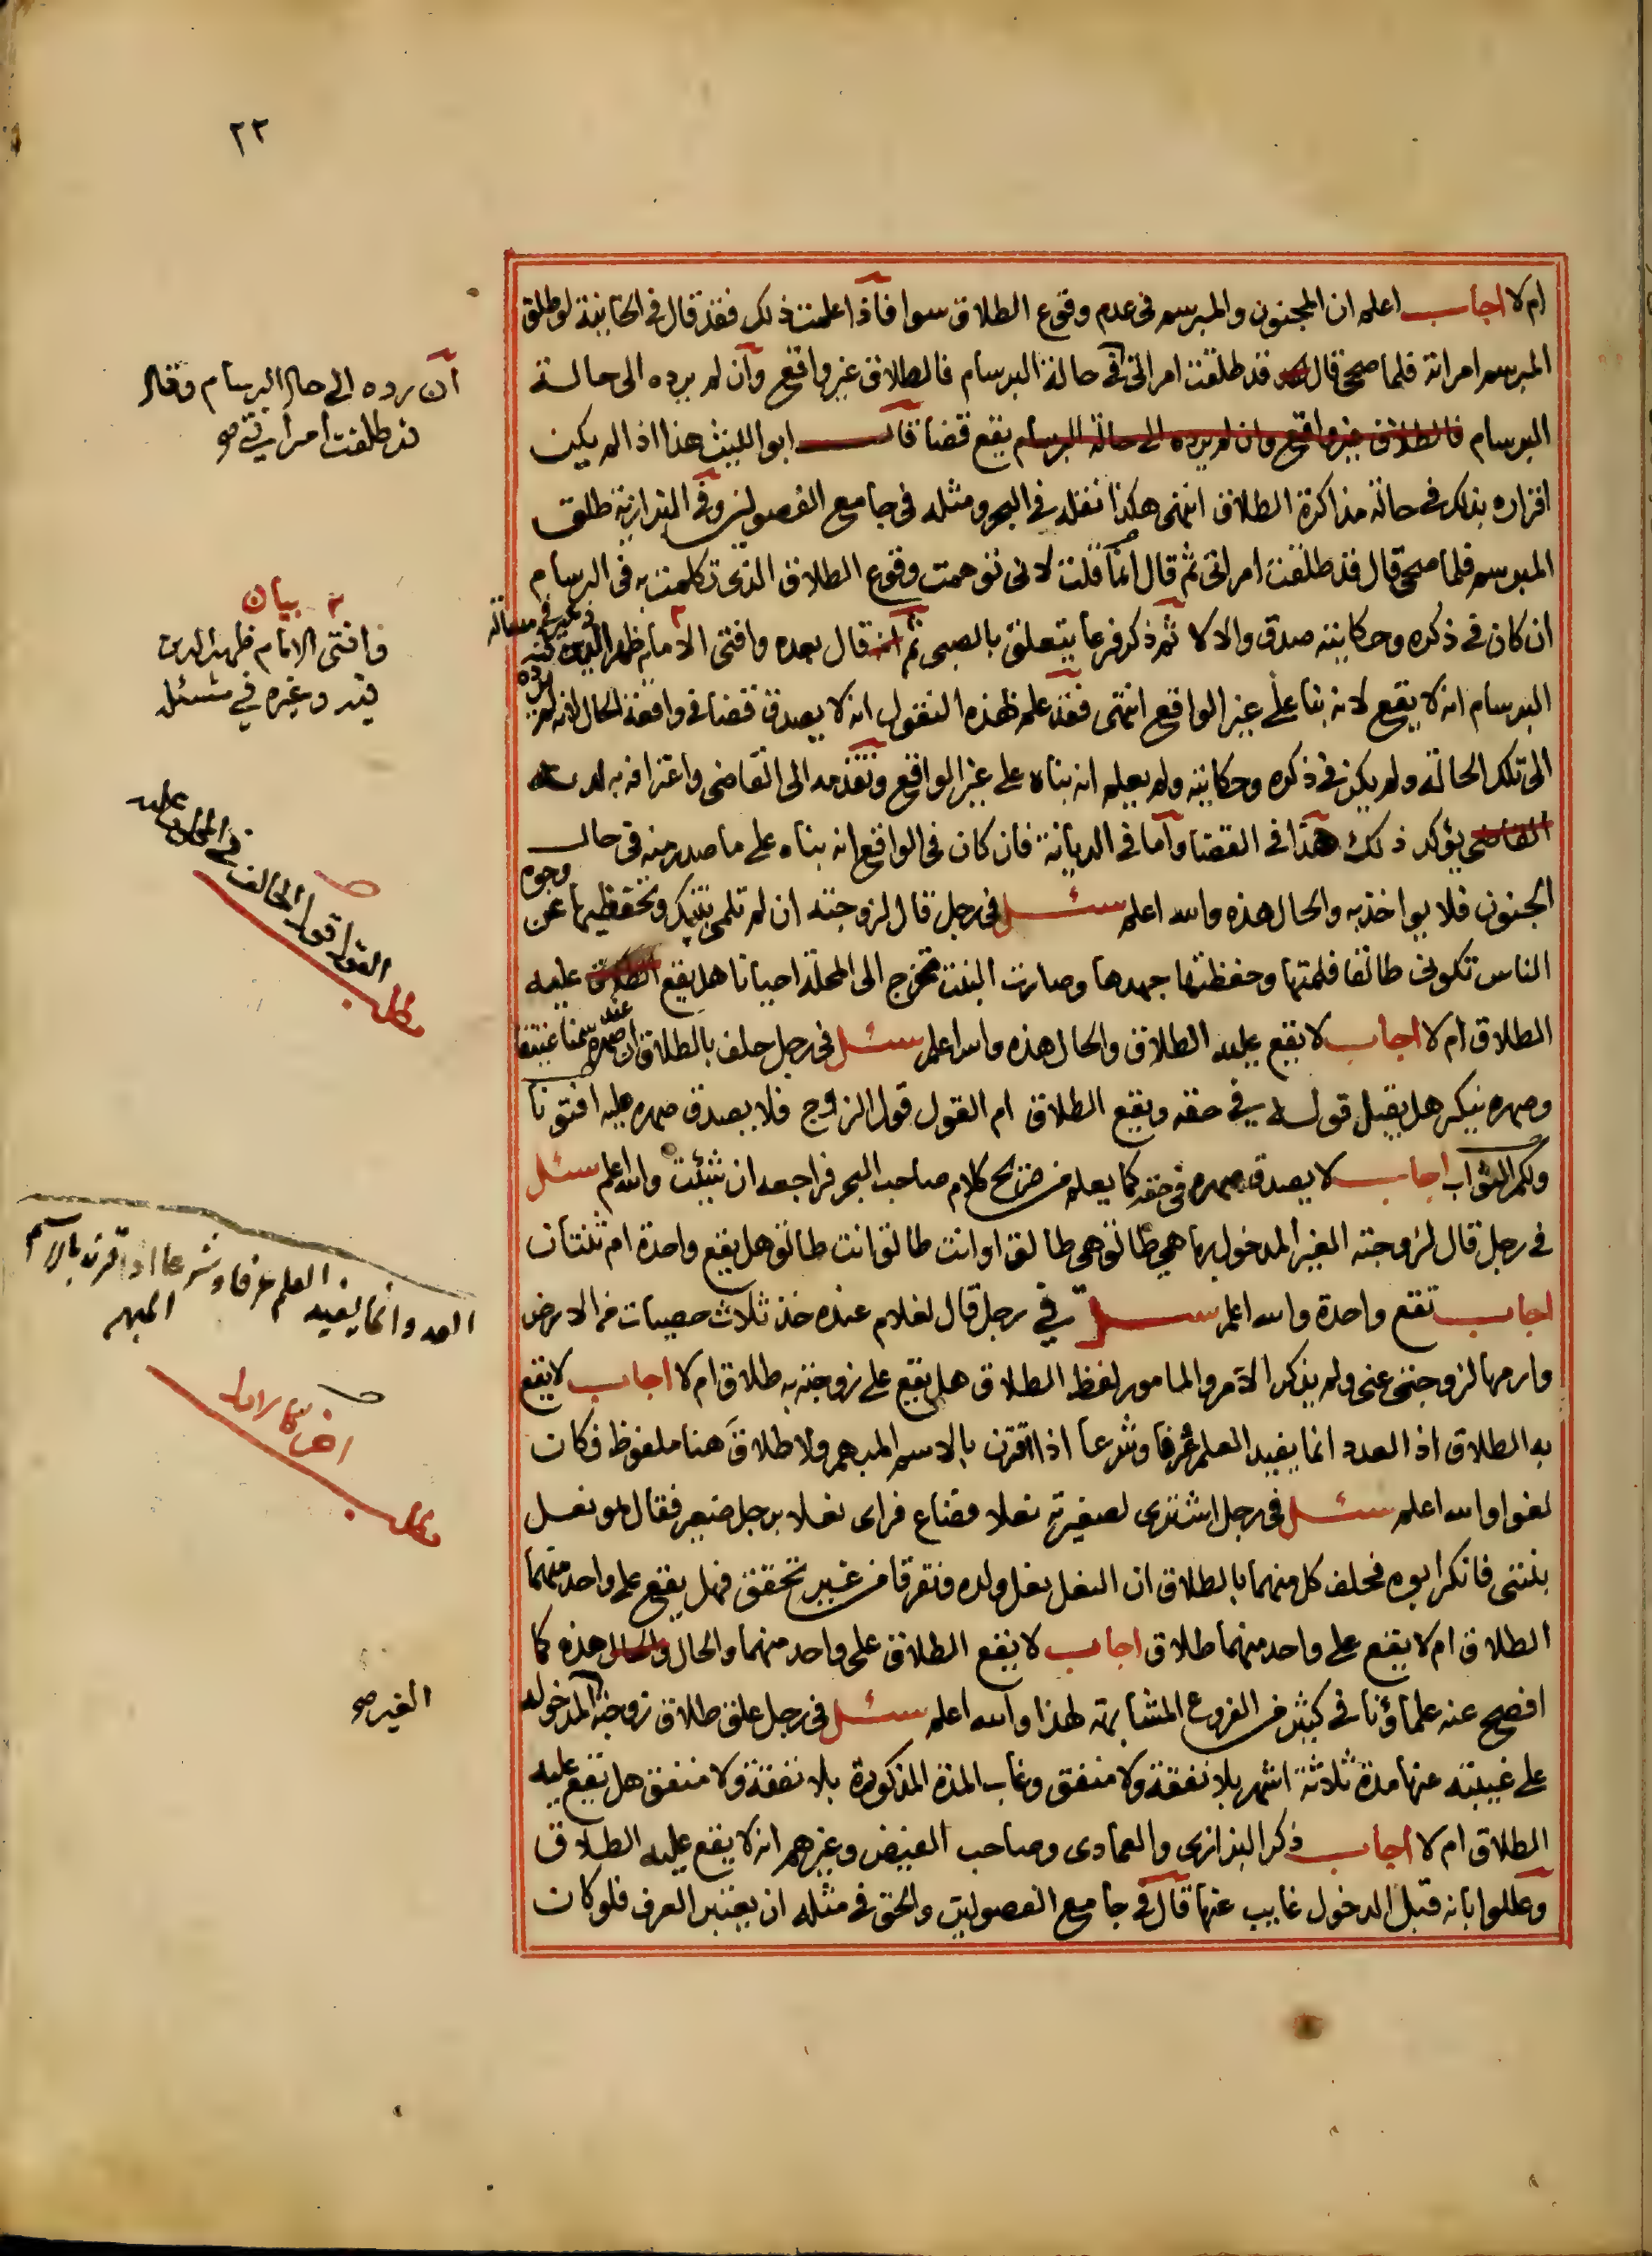 ٢٢
ام لا اجاب اعلم ان المجنون والمبرسم فى عدم وقوع الطلاق سوا فاذا علمت ذلك فقد قال فى الخانية لو طلق
المبرسم امراته فلما صح قال قد طلقت امراتى فى حالة البرسام فالطلاق غير واقع وان لم يرده الى حالة
البرسام فالطلاق غير واقع وان لم يرده الى حالة البرسام يقع قضا قال ابو الليث هذا اذا لم يكن
اقراره بذلك فى حالة مذاكرة الطلاق انتهى هكذا نقله فى البحر ومثله فى جامع الفصولين وفى البزازية طلق
المبرسم فلما صح قال قد طلقت امراتى ثم قال انما قلت لانى توهمت وقوع الطلاق الذى تكلمت به فى البرسام
ان كان فى ذكره وحكايته صدق والا لا ثم ذكر فرعا يتعلق بالصبى ثم قال بعده وافتى الامام ظهير الدين
البرسام انه لا يقع لانه بنا على غير الواقع انتهى فقد علم بهذه النقول انه لا يصدق قضا فى واقعة الحال لانه لم يرده
الى تلك الحالة ولم يكن فى ذكره وحكايته ولم يعلم انه بناه على غير الواقع وتقدمه الى القاضى واعترافه به لديه
القاضى يؤكد ذلك هذا فى القضا واما فى الديانة فان كان فى الواقع انه بناه على ما صدر منه فى حال
الجنون فلا يواخذ به والحال هذه والله اعلم سئل فى رجل قال لزوجته ان لم تلمى بنتك وتحفظيها عن وجوه
الناس تكونى طالقا فلمتها وحفظتها جهدها وصارت البنت تخرج الى المحلة احيانا هل يقع الطلاق عليه
الطلاق ام لا اجاب لا يقع عليه الطلاق والحال هذه والله اعلم سئل فى رجل حلف بالطلاق ان صهره
وصهره ينكر هل يقبل قوله فى حقه ويقع الطلاق ام القول قول الزوج فلا يصدق صهره عليه افتونا
ولكم الثواب اجاب لا يصدق صهره فى حقه كما يعلم من صريح كلام صاحب البحر فراجعه ان شئت والله اعلم سئل
فى رجل قال لزوجته الغير المدخول بها هى طالق هى طالق او انت طالق انت طالق هل يقع واحدة ام ثنتان
اجاب تقع واحدة والله اعلم سئل فى رجل قال لغلام عنده خذ ثلاث حصيات من الارض
وارمها لزوجتى عنى ولم يذكر الآمر والمامور لفظ الطلاق هل يقع على زوجته به طلاق ام لا اجاب لا يقع
به الطلاق اذ العدد انما يفيد العلم عرفا وشرعا اذا اقترن بالاسم المبهم ولا طلاق هنا ملفوظ فكان
لغوا والله اعلم سئل فى رجل اشترى لصغيرته نعلا فضاع فراى نعلا برجل صغير فقال هو نعل
بنتى فانكر ابوه فحلف كل منهما بالطلاق ان النعل نعل ولده وتفرقا من غير تحقق فهل يقع على واحد منهما
الطلاق ام لا يقع على واحد منهما طلاق اجاب لا يقع الطلاق على واحد منهما والحال والحال هذه كما
افصح عنه علماؤنا فى كثير من الفروع المشابهة لهذا والله اعلم سئل فى رجل علق طلاق زوجته المدخوله
على غيبته عنها مدة ثلاثة اشهر بلا نفقة ولا منفق وغاب المدة المذكورة بلا نفقة ولا منفق هل يقع عليه
الطلاق ام لا اجاب ذكر البزازى والعمادى وصاحب الفيض وغيرهم انه لا يقع عليه الطلاق
وعللوا بانه قبل الدخول غايب عنها قال فى جامع الفصولين والحق فى مثله ان يعتبر العرف فلو كان
ان رده الى حال البرسام وقال
قد طلقت امراتى صح
بيان
وافتى الامام ظهير الدين
فيه وغيره فى
مطلب
القول قول الحالف فى
العدد انما يفيد العلم عرفا وشرعا اذا اقترن بالاسم
المبهم
مطلب
الغير صح